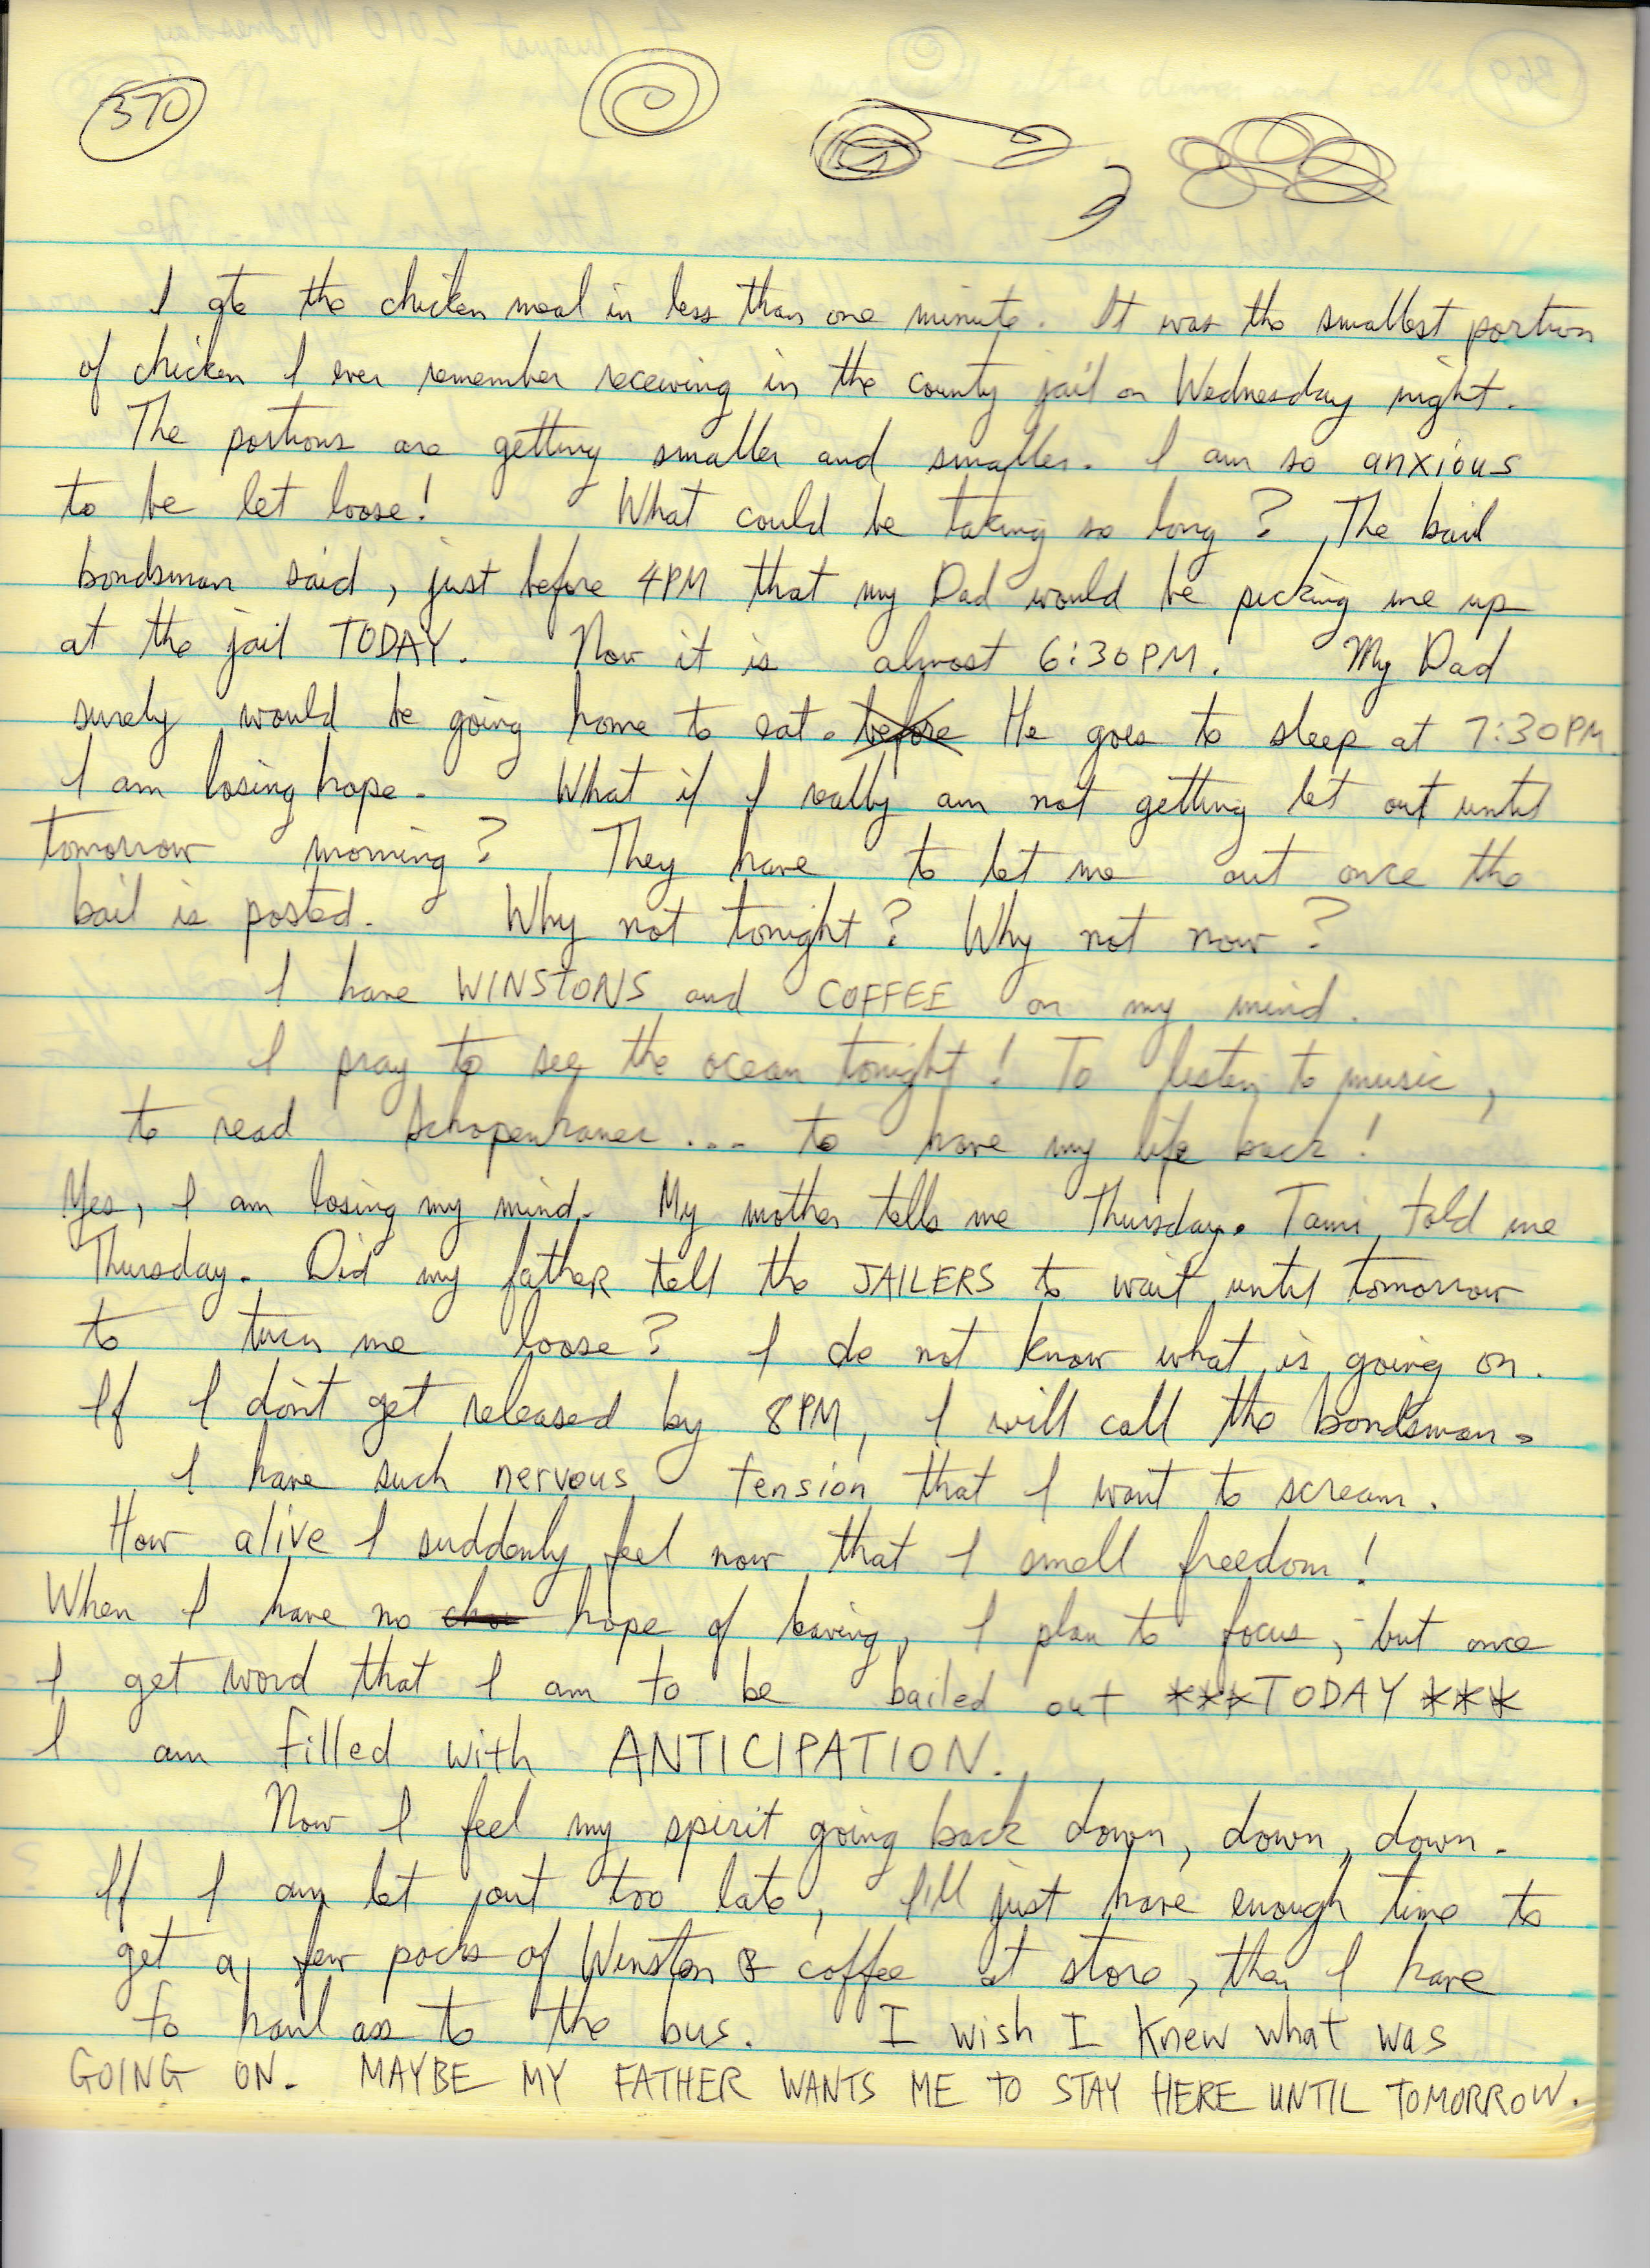 370
I ate the chicken meal in less than one minute. It was the smallest portion
of chicken I ever remember receiving in the county jail on Wednesday night.
The portions are getting smaller and smaller. I am so anxious
to be let loose! What could be taking so long? The bail
bondsman said, just before 4PM that my Dad would be picking me up
at the jail TODAY. Now it is almost 6:30PM. My Dad
surely would be going home to eat. before He goes to sleep at 7:30PM
I am losing hope. What if I really am not getting let out until
tomorrow morning? They have to let me out once the
bail is posted. Why not tonight? Why not now?
I have WINSTONS and COFFEE on my mind.
I pray to see the ocean tonight! To listen to music,
to read Schopenhauer... to have my life back!
Yes, I am losing my mind. My mother tells me Thursday. Tami told me
Thursday. Did my father tell the JAILERS to wait until tomorrow
to turn me loose? I do not know what is going on.
If I don't get released by 8PM, I will call the bondsman.
I have such nervous tension that I want to scream.
How alive I suddenly feel now that I smell freedom!
When I have no hope of leaving, I plan to focus, but once
I get word that I am to be bailed out ***TODAY***
I am filled with ANTICIPATION.
Now I feel my spirit going back down, down, down.
If I am let out too late, I'll just have enough time to
get a few packs of Winston & coffee at store, then I have
to haul ass to the bus. I wish I knew what was
GOING ON. MAYBE MY FATHER WANTS ME TO STAY HERE UNTIL TOMORROW.